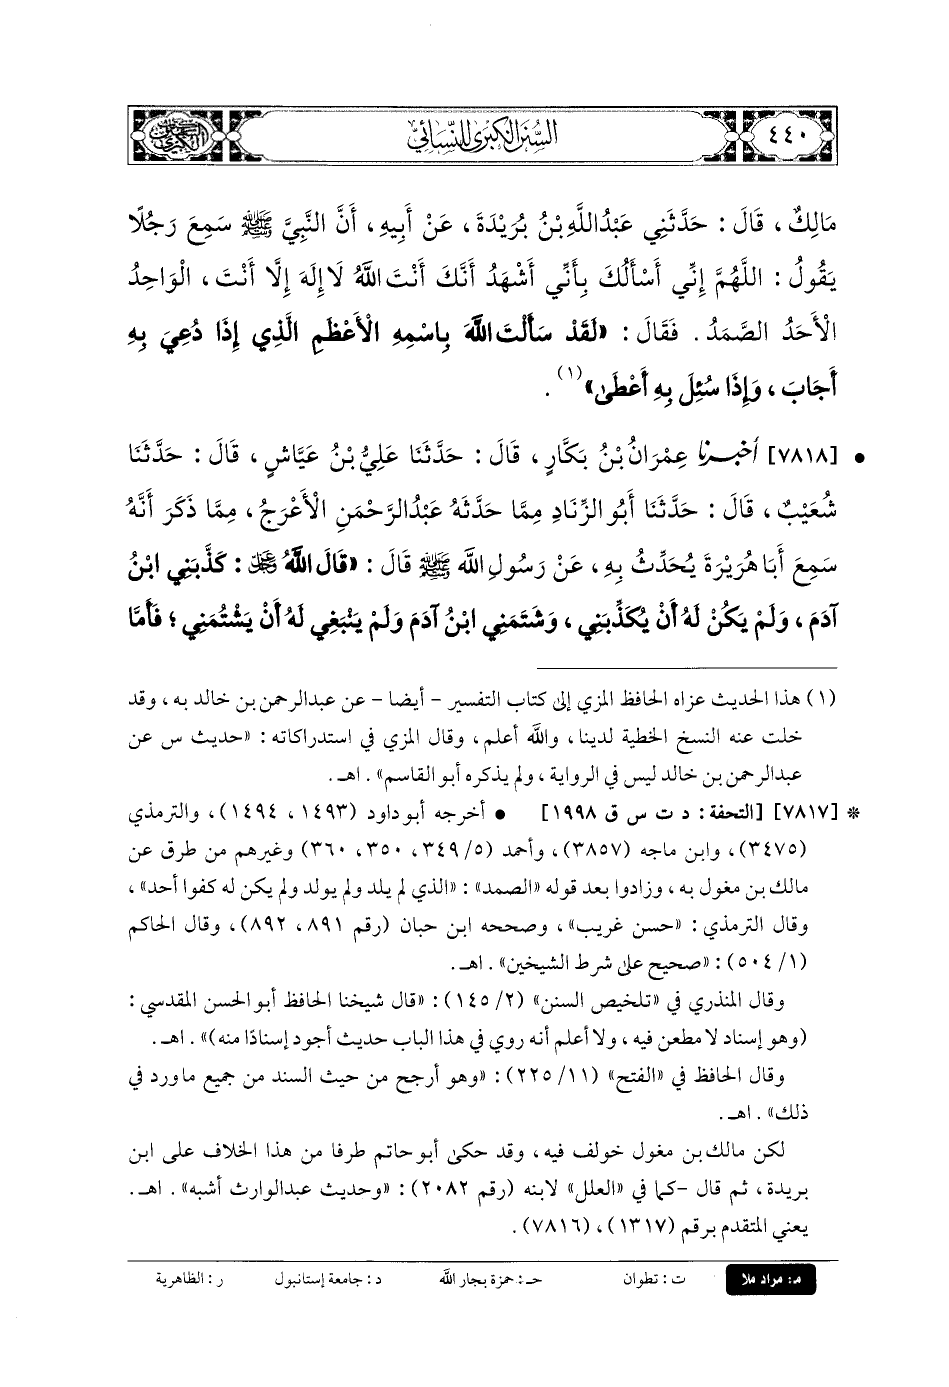 ٤٤٠
السنن الكبرى للنسائي
مَالِكٌ ، قَالَ : حَدَّثَنِي عَبْدُاللَّهِ بْنُ بُرَيْدَةَ ، عَنْ أَبِيهِ ، أَنَّ النَّبِيَّ ﷺ سَمِعَ رَجُلًا
يَقُولُ : اللَّهُمَّ إِنِّي أَسْأَلُكَ بِأَنِّي أَشْهَدُ أَنَّكَ أَنْتَ اللَّهُ لَا إِلَهَ إِلَّا أَنْتَ ، الْوَاحِدُ
الْأَحَدُ الصَّمَدُ . فَقَالَ : «لَقَدْ سَأَلْتَ اللَّهَ بِاسْمِهِ الْأَعْظَمِ الَّذِي إِذَا دُعِيَ بِهِ
أَجَابَ ، وَإِذَا سُئِلَ بِهِ أَعْطَى»(١) .
• [٧٨١٨] أَخْبَرَنَا عِمْرَانُ بْنُ بَكَّارٍ ، قَالَ : حَدَّثَنَا عَلِيُّ بْنُ عَيَّاشٍ ، قَالَ : حَدَّثَنَا
شُعَيْبٌ ، قَالَ : حَدَّثَنَا أَبُو الزِّنَادِ مِمَّا حَدَّثَهُ عَبْدُالرَّحْمَنِ الْأَعْرَجُ ، مِمَّا ذَكَرَ أَنَّهُ
سَمِعَ أَبَا هُرَيْرَةَ يُحَدِّثُ بِهِ ، عَنْ رَسُولِ اللَّه ﷺ قَالَ : «قَالَ اللَّهُ ﷿ : كَذَّبَنِي ابْنُ
آدَمَ ، وَلَمْ يَكُنْ لَهُ أَنْ يُكَذِّبَنِي ، وَشَتَمَنِي ابْنُ آدَمَ وَلَمْ يَنْبَغِي لَهُ أَنْ يَشْتُمَنِي ؛ فَأَمَّا
(١) هذا الحديث عزاه الحافظ المزي إلى كتاب التفسير - أيضا - عن عبدالرحمن بن خالد به ، وقد
خلت عنه النسخ الخطية لدينا ، والله أعلم ، وقال المزي في استدراكاته : «حديث س عن
عبدالرحمن بن خالد ليس في الرواية ، ولم يذكره أبو القاسم» . اهـ .
* [٧٨١٧] [التحفة : د ت س ق ١٩٩٨] • أخرجه أبو داود (١٤٩٣ ، ١٤٩٤) ، والترمذي
(٣٤٧٥) ، وابن ماجه (٣٨٥٧) ، وأحمد (٥/ ٣٤٩ ، ٣٥٠ ، ٣٦٠) وغيرهم من طرق عن
مالك بن مغول به ، وزادوا بعد قوله «الصمد» : «الذي لم يلد ولم يولد ولم يكن له كفوا أحد» ،
وقال الترمذي : «حسن غريب» ، وصححه ابن حبان (رقم ٨٩١ ، ٨٩٢) ، وقال الحاكم
(١/ ٥٠٤) : «صحيح على شرط الشيخين» . اهـ .
وقال المنذري في «تلخيص السنن» (٢/ ١٤٥) : «قال شيخنا الحافظ أبو الحسن المقدسي :
(وهو إسناد لا مطعن فيه ، ولا أعلم أنه روي في هذا الباب حديث أجود إسنادًا منه)» . اهـ .
وقال الحافظ في «الفتح» (١١/ ٢٢٥) : «وهو أرجح من حيث السند من جميع ما ورد في
ذلك» . اهـ .
لكن مالك بن مغول خولف فيه ، وقد حكى أبو حاتم طرفا من هذا الخلاف على ابن
بريدة ، ثم قال -كما في «العلل» لابنه (رقم ٢٠٨٢) : «وحديث عبدالوارث أشبه» . اهـ .
يعني المتقدم برقم (١٣١٧) ، (٧٨١٦) .
م : مراد ملا ت : تطوان حـ : حمزة بجار الله د : جامعة إستانبول ر : الظاهرية